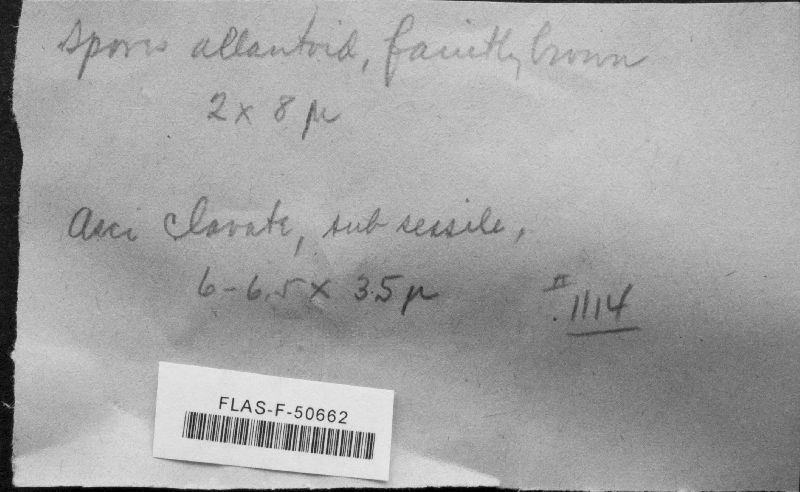 Spores allantoid, faintly brown
2 x 8 µ
Asci clavate, sub sessile,
6-6.5 x 35 µ
II
.1114
FLAS-F-50662